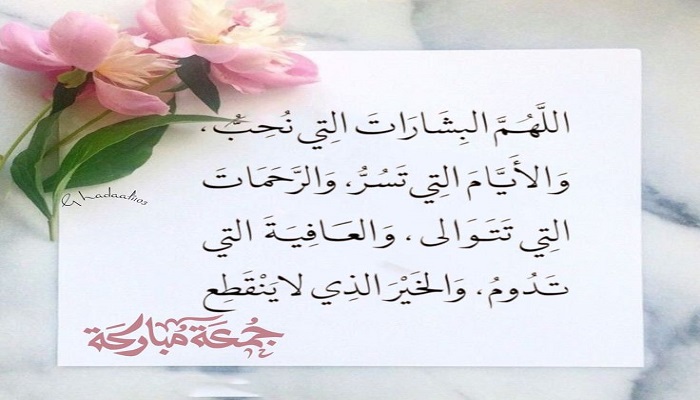 اللَّهُمَّ البِشَارَاتَ التِي نُحِبُّ،
وَالأَيَّامَ التِي تَسُرُّ، وَالرَّحَمَاتَ
التِي تَتَوَالى، وَالعَافِيَةَ التي
تَدُومُ، وَالخَيْرَ الذِي لا يَنْقَطِع
جُمعَة مُباركَة